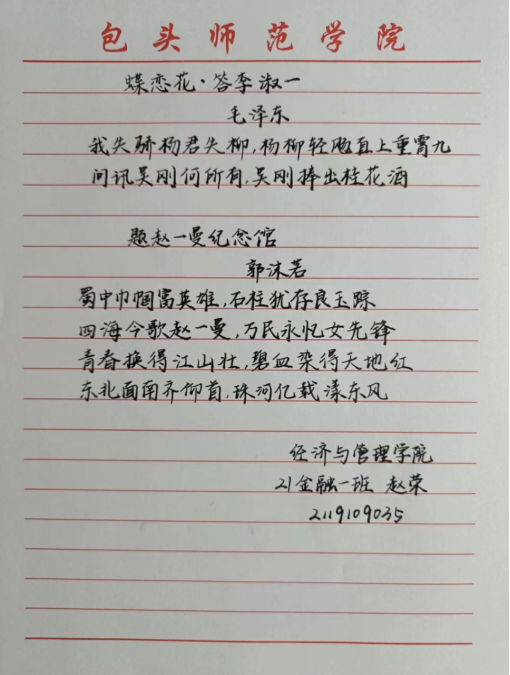 包头师范学院
蝶恋花·答李淑一
毛泽东
我失骄杨君失柳,杨柳轻飏直上重霄九
问讯吴刚何所有,吴刚捧出桂花酒
题赵一曼纪念馆
郭沫若
蜀中巾帼富英雄,石柱犹存良玉踪
四海今歌赵一曼,万民永忆女先锋
青春换得江山壮,碧血染得天地红
东北西南齐仰首,珠河亿载漾东风
经济与管理学院
21金融一班 赵荣
2119109035